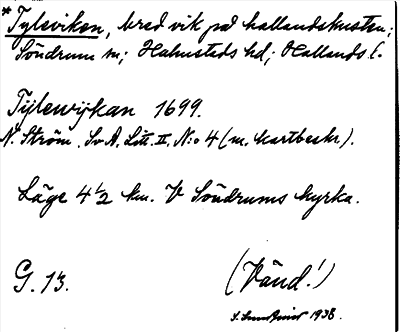 * Tyleviken, bred vik på hallandskusten;
Söndrum sn; Halmstads hd; Hallands l.
Tÿlewÿkan 1699.
N. Ström. Sv A. Litt. II. N:o 4 (m. kartbeskr).
Läge 4 1/2 km. V Söndrums kyrka.
G. 13.
(Vänd!)
1938.